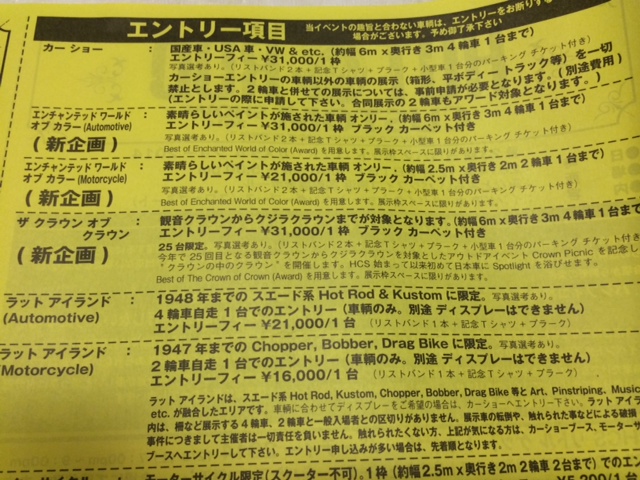 エントリー項目
当イベントの趣旨と合わない車輌は、エントリーをお断りする
場合がございます。予めご了承下さい
カー ショー : 国産車・USA 車・VW & etc. (約幅 6m x 奥行き 3m 4 輪車 1 台まで)
エントリーフィー ¥31,000/1 枠
写真選考あり。(リストバンド 2 本 + 記念 T シャツ + プラーク + 小型車 1 台分のパーキング チケット付き)
カーショーエントリーの車輌以外の車輌の展示 (箱形、平ボディー トラック等) を一切
禁止とします。2 輪車と併せての展示については、事前申請が必要となります。(別途費用)
(エントリーの際に申請して下さい。合同展示の 2 輪車もアワード対象となります。)
エンチャンテッド ワールド : 素晴らしいペイントが施された車輌 オンリー。(約幅 6m x 奥行き 3m 4 輪車 1 台まで)
オブ カラー (Automotive) エントリーフィー ¥31,000/1 枠 ブラック カーペット付き
(新企画) 写真選考あり。(リストバンド 2 本 + 記念 T シャツ + プラーク + 小型車 1 台分のパーキング チケット付き)
Best of Enchanted World of Color (Award) を用意します。展示枠スペースに限りがあります。
エンチャンテッド ワールド : 素晴らしいペイントが施された車輌 オンリー。(約幅 2.5m x 奥行き 2m 2 輪車 1 台まで)
オブ カラー (Motorcycle) エントリーフィー ¥21,000/1 枠 ブラック カーペット付き
(新企画) 写真選考あり。(リストバンド 2 本 + 記念 T シャツ + プラーク + 小型車 1 台分のパーキング チケット付き)
Best of Enchanted World of Color (Award) を用意します。展示枠スペースに限りがあります。
ザ クラウン オブ : 観音クラウンからクジラクラウンまでが対象となります。(約幅 6m x 奥行き 3m 4 輪車 1 台まで)
クラウン エントリーフィー ¥31,000/1 枠 ブラック カーペット付き
(新企画) 25 台限定。写真選考あり。(リストバンド 2 本 + 記念 T シャツ + プラーク + 小型車 1 台分のパーキング チケット付
今年で 25 回目となる観音クラウンからクジラクラウンを対象としたアウトドアイベント Crown Picnic を記念し
"クラウンの中のクラウン" を開催します。HCS 始まって以来初めて日本車に Spotlight を浴びせます。
Best of The Crown of Crown (Award) を用意します。展示枠スペースに限りがあります。
ラット アイランド : 1948 年までの スエード系 Hot Rod & Kustom に限定。写真選考あり。
(Automotive) 4 輪車自走 1 台でのエントリー (車輌のみ。別途 ディスプレーはできません)
エントリーフィー ¥21,000/1 台 (リストバンド 1 本 + 記念 T シャツ + プラーク)
ラット アイランド : 1947 年までの Chopper, Bobber, Drag Bike に限定。写真選考あり。
(Motorcycle) 2 輪車自走 1 台でのエントリー (車輌のみ。別途 ディスプレーはできません)
エントリーフィー ¥16,000/1 台 (リストバンド 1 本 + 記念 T シャツ + プラーク)
ラット アイランドは、スエード系 Hot Rod, Kustom, Chopper, Bobber, Drag Bike 等と Art, Pinstriping, Music
etc. が融合したエリアです。車輌に合わせてディスプレーをご希望の場合は、カーショーへエントリー下さい。ラット
内は、柵など展示する 4 輪車、2 輪車と一般入場者との区切りがありません。展示車の転倒や、触れられた事などによる破損
事件につきまして主催者は一切責任を負いません。触れられたくない方、上記が気になる方は、カーショーブース、モーターサ
ブースへエントリーして下さい。エントリー申し込みが多い場合は、先着順となります。
モーターサイクル限定 (スクーター不可)。1 枠 (約幅 2.5m x 奥行き 2m 2 輪車 2 台まで) でのエ